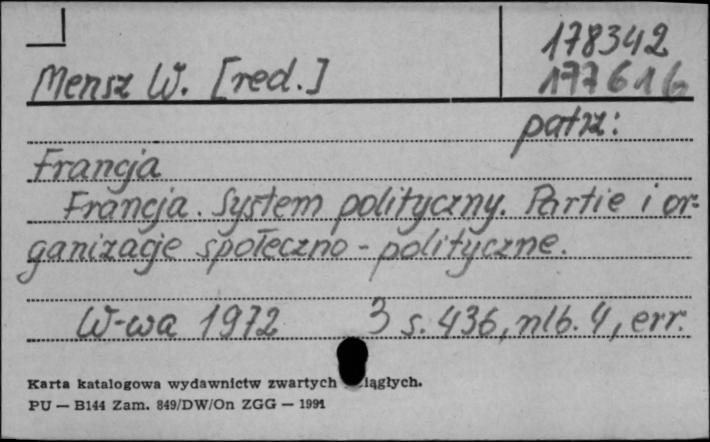 178342
Mensz W. [red.] 177616
patrz:
Francja
Francja. System polityczny. Partie i or-
ganizacje społeczno-polityczne.
W-wa 1972 3 s. 436, nlb. 4, err.
Karta katalogowa wydawnictw zwartych iągłych.
PU — B144 Zam. 849/DW/On ZGG — 1991